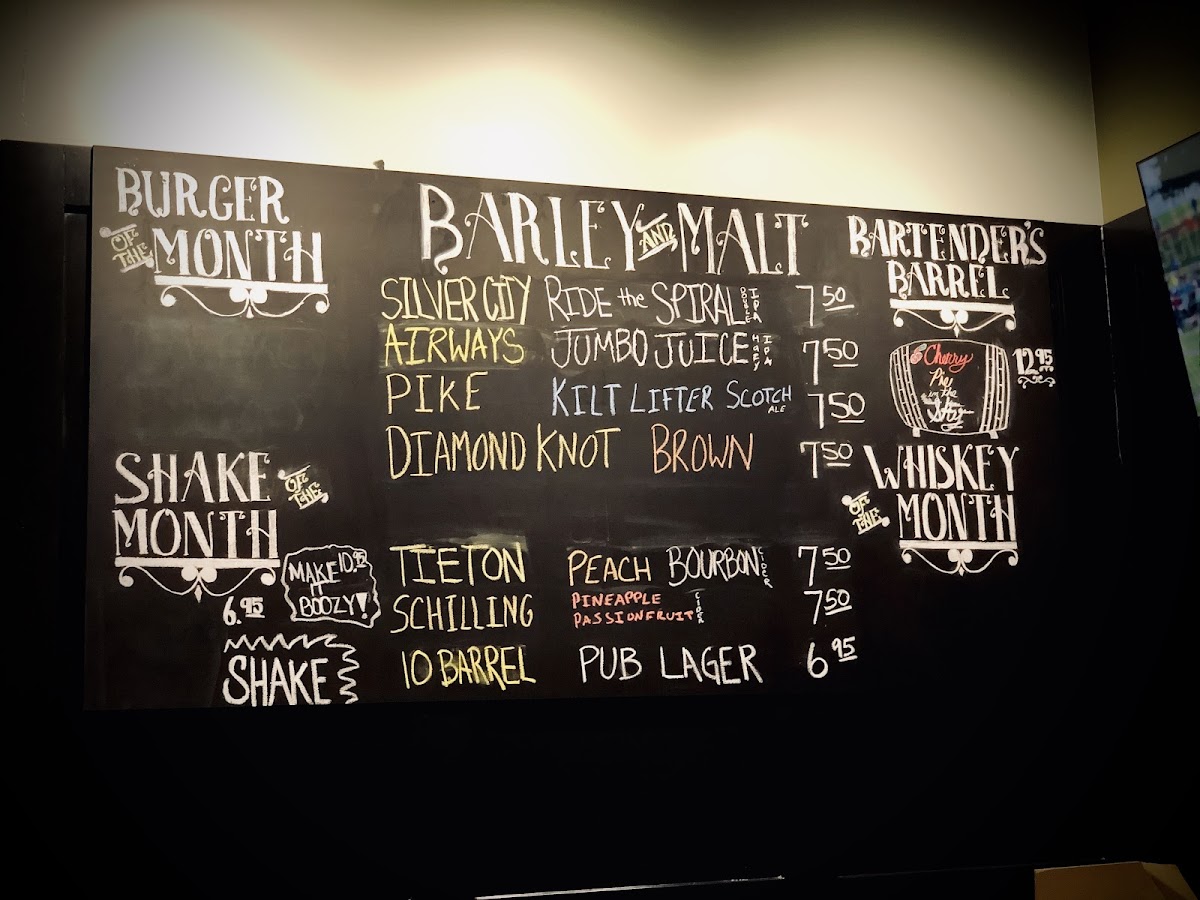 BURGER
OF THE
MONTH
SHAKE OF THE
MONTH
6.95
MAKE 10.95
IT
BOOZY!
SHAKE
BARLEY AND MALT
SILVER CITY RIDE the SPIRAL DOUBLE IPA 7 50
AIRWAYS JUMBO JUICE HAZY IPA 7 50
PIKE KILT LIFTER SCOTCH ALE 7 50
DIAMOND KNOT BROWN 7 50
TIETON PEACH BOURBON CIDER 7 50
SCHILLING PINEAPPLE PASSIONFRUIT CIDER 7 50
10 BARREL PUB LAGER 6 95
BARTENDER'S
BARREL
Cherry
Pie
in the
Sky
12.95
WHISKEY
OF THE
MONTH